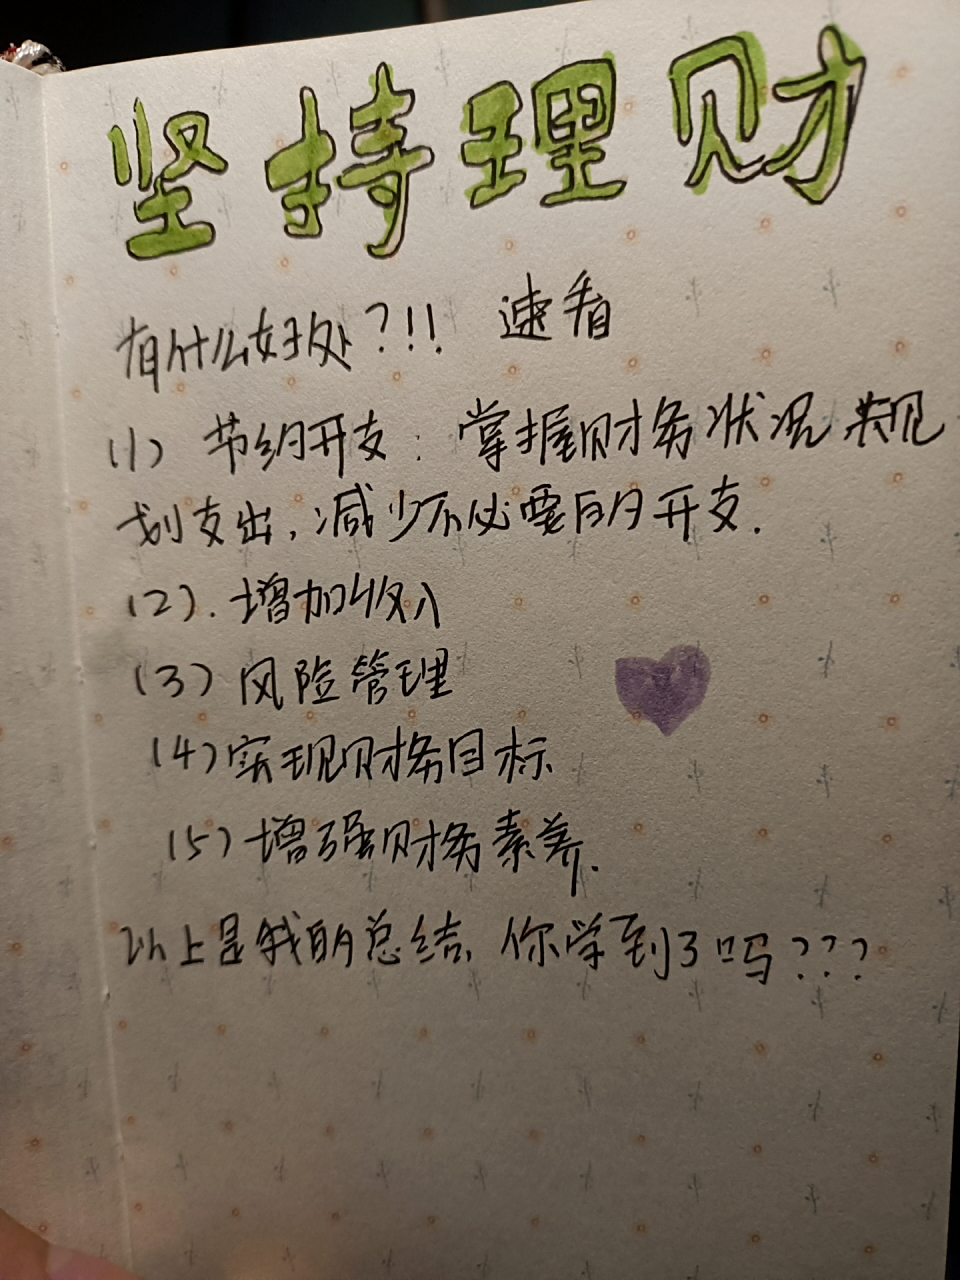 坚持理财
有什么好处?!!  速看
(1) 节约开支:掌握财务状况 规
划支出,减少不必要的开支.
(2). 增加收入
(3) 风险管理
(4) 实现财务目标
(5) 增强财务素养.
以上是我的总结, 你学到了吗???